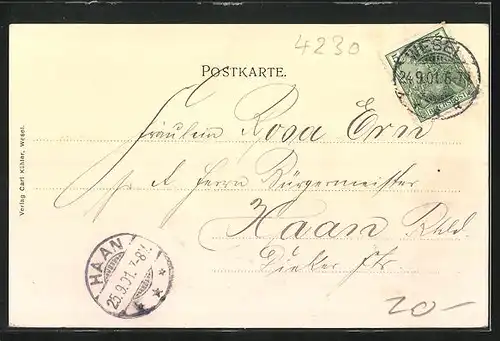 4230
POSTKARTE.
WESEL
24.9.01.6-7N
Fräulein Rosa Ern
p. A. Herrn Bürgermeister
Haan Rhld.
Verlag Carl Kühler, Wesel.
HAAN
25.9.01.7-8V.
20-